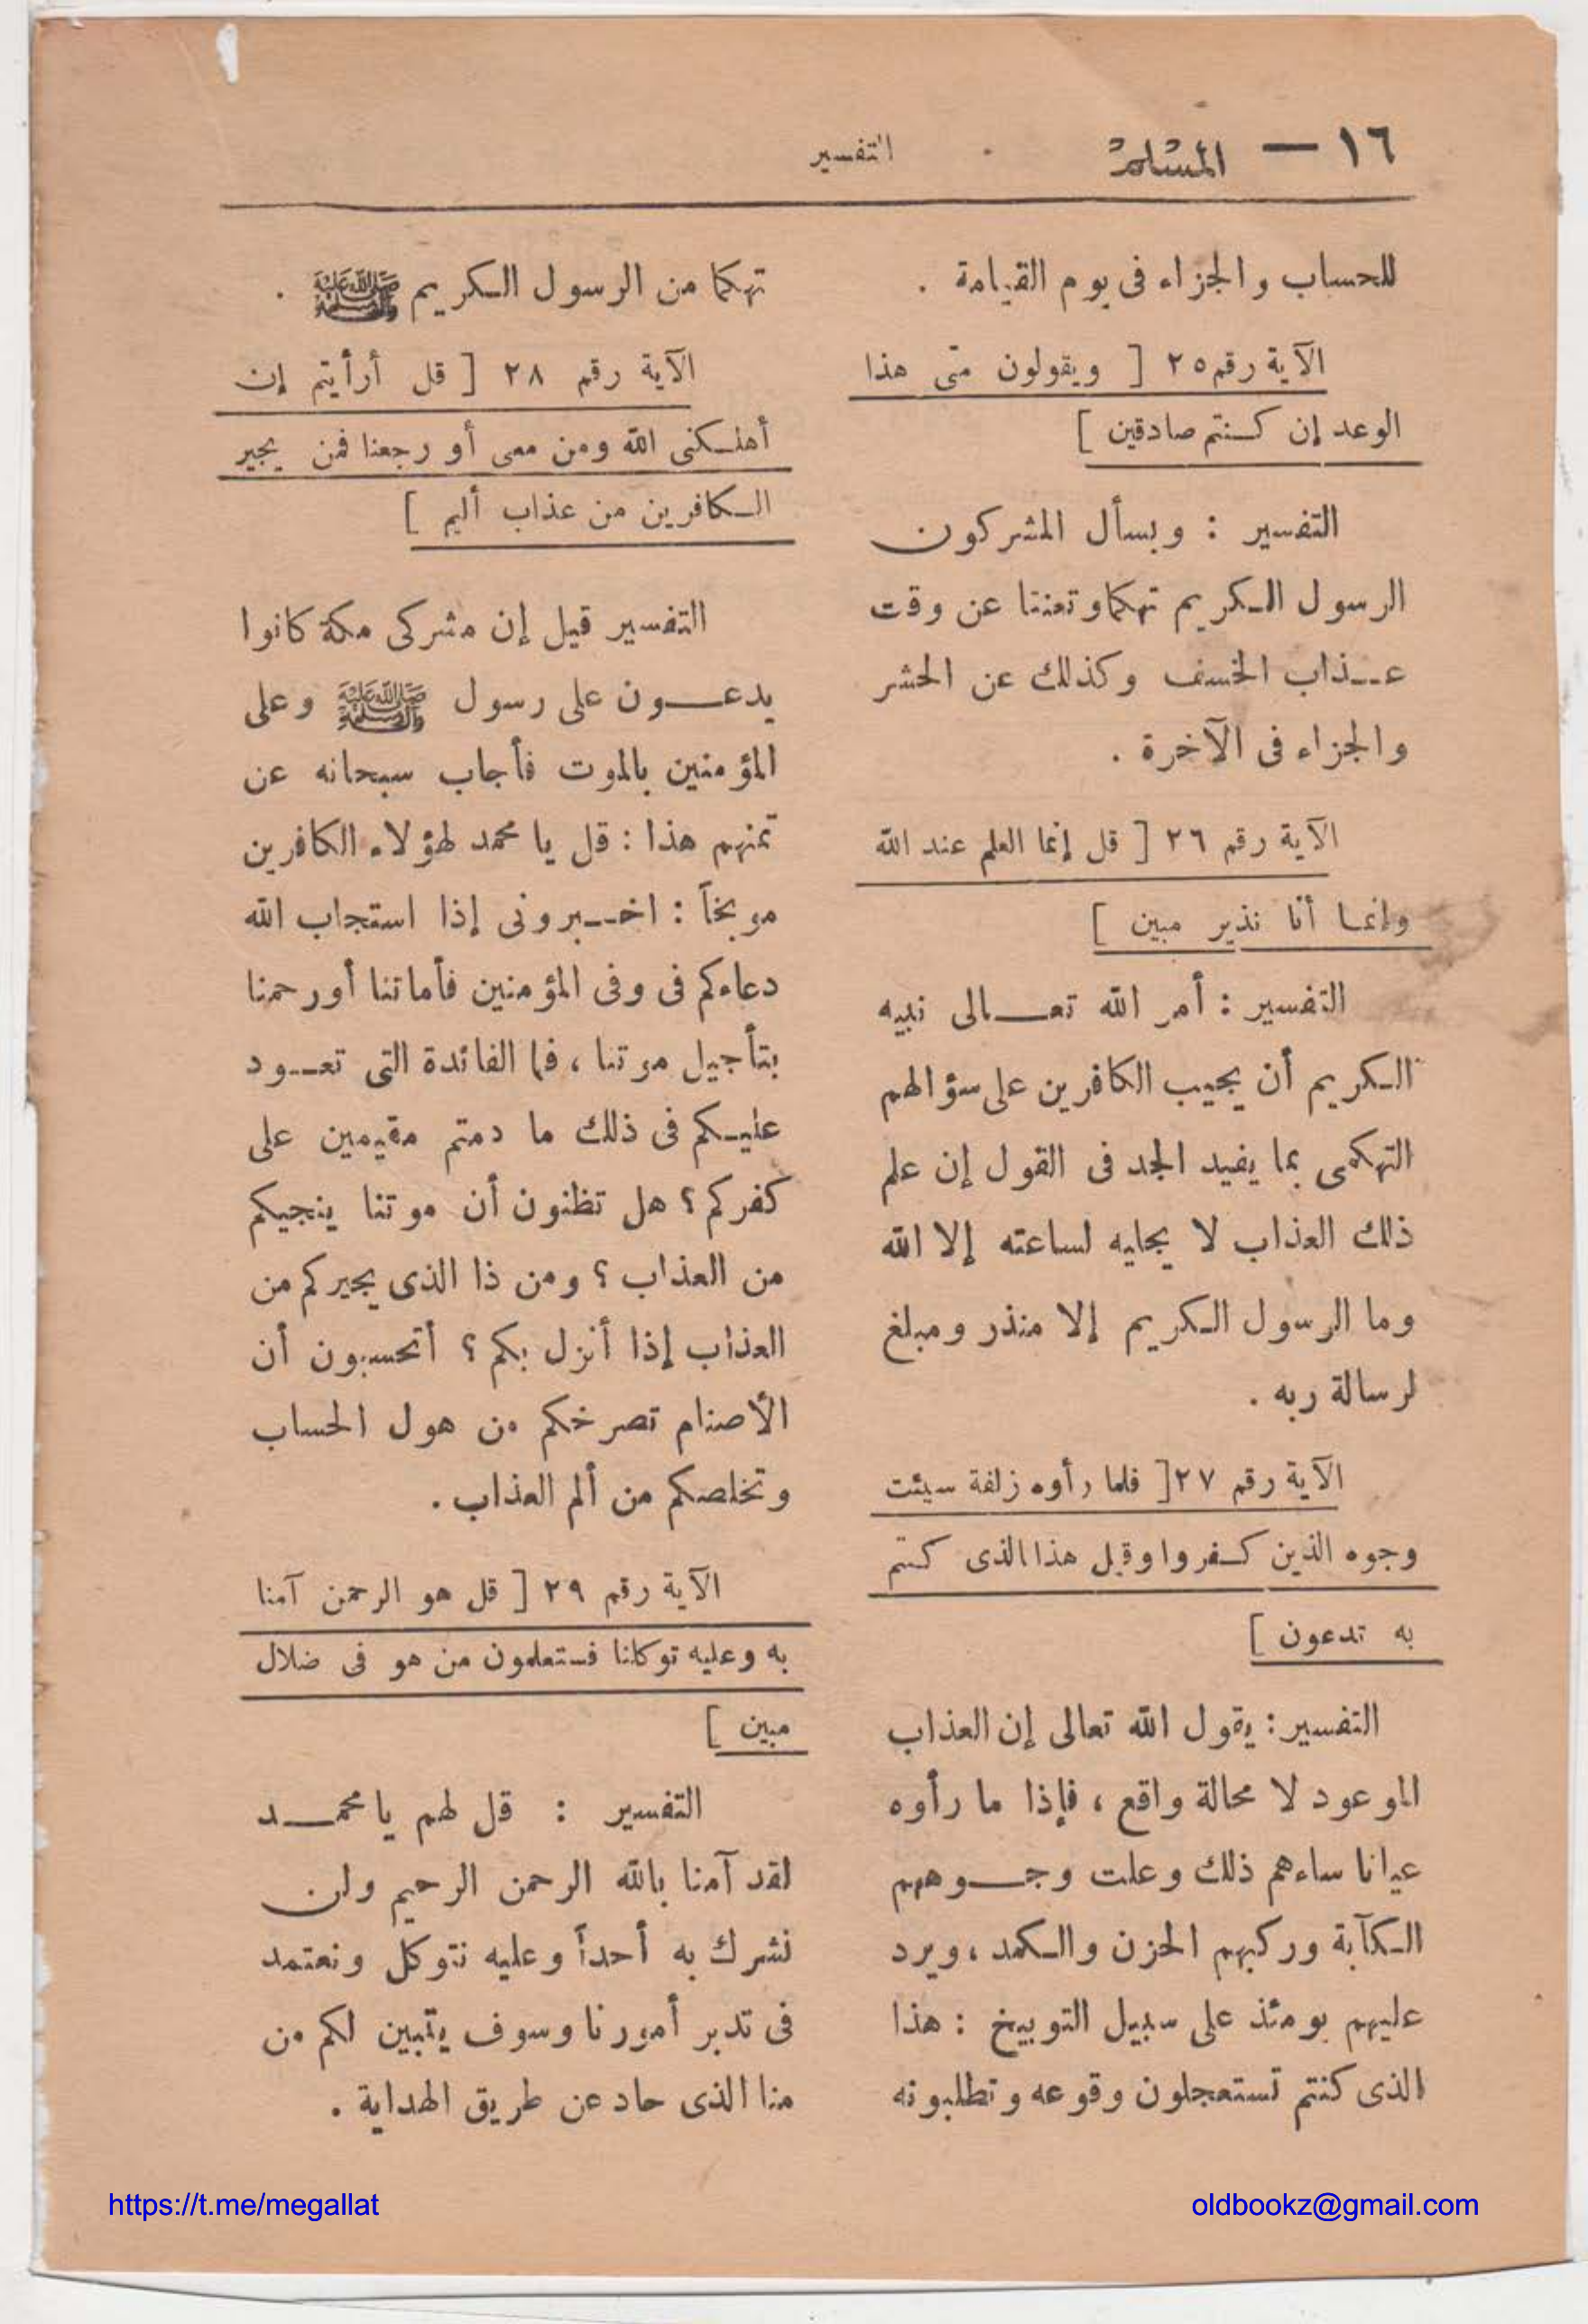 ١٦ — المسلم
التفسير
للحساب والجزاء فى يوم القيامة .
الآية رقم ٢٥ [ ويقولون متى هذا
الوعد إن كنتم صادقين ]
التفسير : ويسأل المشركون
الرسول الكريم تهكما وتعنتا عن وقت
عذاب الخسف وكذلك عن الحشر
والجزاء فى الآخرة .
الآية رقم ٢٦ [ قل إنما العلم عند الله
وإنما أنا نذير مبين ]
التفسير : أمر الله تعالى نبيه
الكريم أن يجيب الكافرين على سؤالهم
التهكمى بما يفيد الجد فى القول إن علم
ذلك العذاب لا يجليه لساعته إلا الله
وما الرسول الكريم إلا منذر ومبلغ
لرسالة ربه .
الآية رقم ٢٧ [ فلما رأوه زلفة سيئت
وجوه الذين كفروا وقيل هذا الذى كنتم
به تدعون ]
التفسير : يقول الله تعالى إن العذاب
الموعود لا محالة واقع ، فإذا ما رأوه
عيانا ساءهم ذلك وعلت وجوههم
الكآبة وركبهم الحزن والكمد ، ويرد
عليهم يومئذ على سبيل التوبيخ : هذا
الذى كنتم تستعجلون وقوعه وتطلبونه
تهكما من الرسول الكريم ﷺ .
الآية رقم ٢٨ [ قل أرأيتم إن
أهلكنى الله ومن معى أو رحمنا فمن يجير
الكافرين من عذاب أليم ]
التفسير قيل إن مشركى مكة كانوا
يدعون على رسول ﷺ وعلى
المؤمنين بالموت فأجاب سبحانه عن
تمنهم هذا : قل يا محمد لهؤلاء الكافرين
موبخاً : اخبرونى إذا استجاب الله
دعاءكم فى وفى المؤمنين فأماتنا أو رحمنا
بتأجيل موتنا ، فما الفائدة التى تعود
عليكم فى ذلك ما دمتم مقيمين على
كفركم ؟ هل تظنون أن موتنا ينجيكم
من العذاب ؟ ومن ذا الذى يجيركم من
العذاب إذا أنزل بكم ؟ أتحسبون أن
الأصنام تصرخكم من هول الحساب
وتخلصكم من ألم العذاب .
الآية رقم ٢٩ [ قل هو الرحمن آمنا
به وعليه توكلنا فستعلمون من هو فى ضلال
مبين ]
التفسير : قل لهم يا محمد
لقد آمنا بالله الرحمن الرحيم ولن
نشرك به أحداً وعليه نتوكل ونعتمد
فى تدبر أمورنا وسوف يتبين لكم من
منا الذى حاد عن طريق الهداية .
https://t.me/megallat
oldbookz@gmail.com